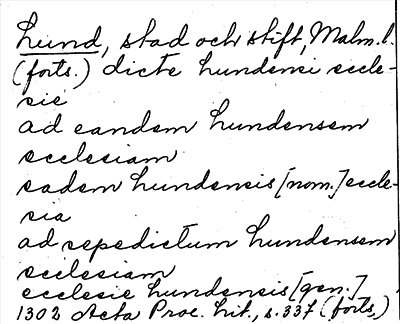 Lund, stad och stift, Malm. l.
(forts.) dicte Lundensi eccle-
sie
ad eandem Lundensem
ecclesiam
eadem Lundensis [nom.] eccle-
sia
ad sepedictum Lundensem
ecclesiam
ecclesie Lundensis [gen.]
1302 Acta Proc. Lit., s. 337 (forts)